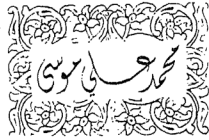 محمد علي موسى